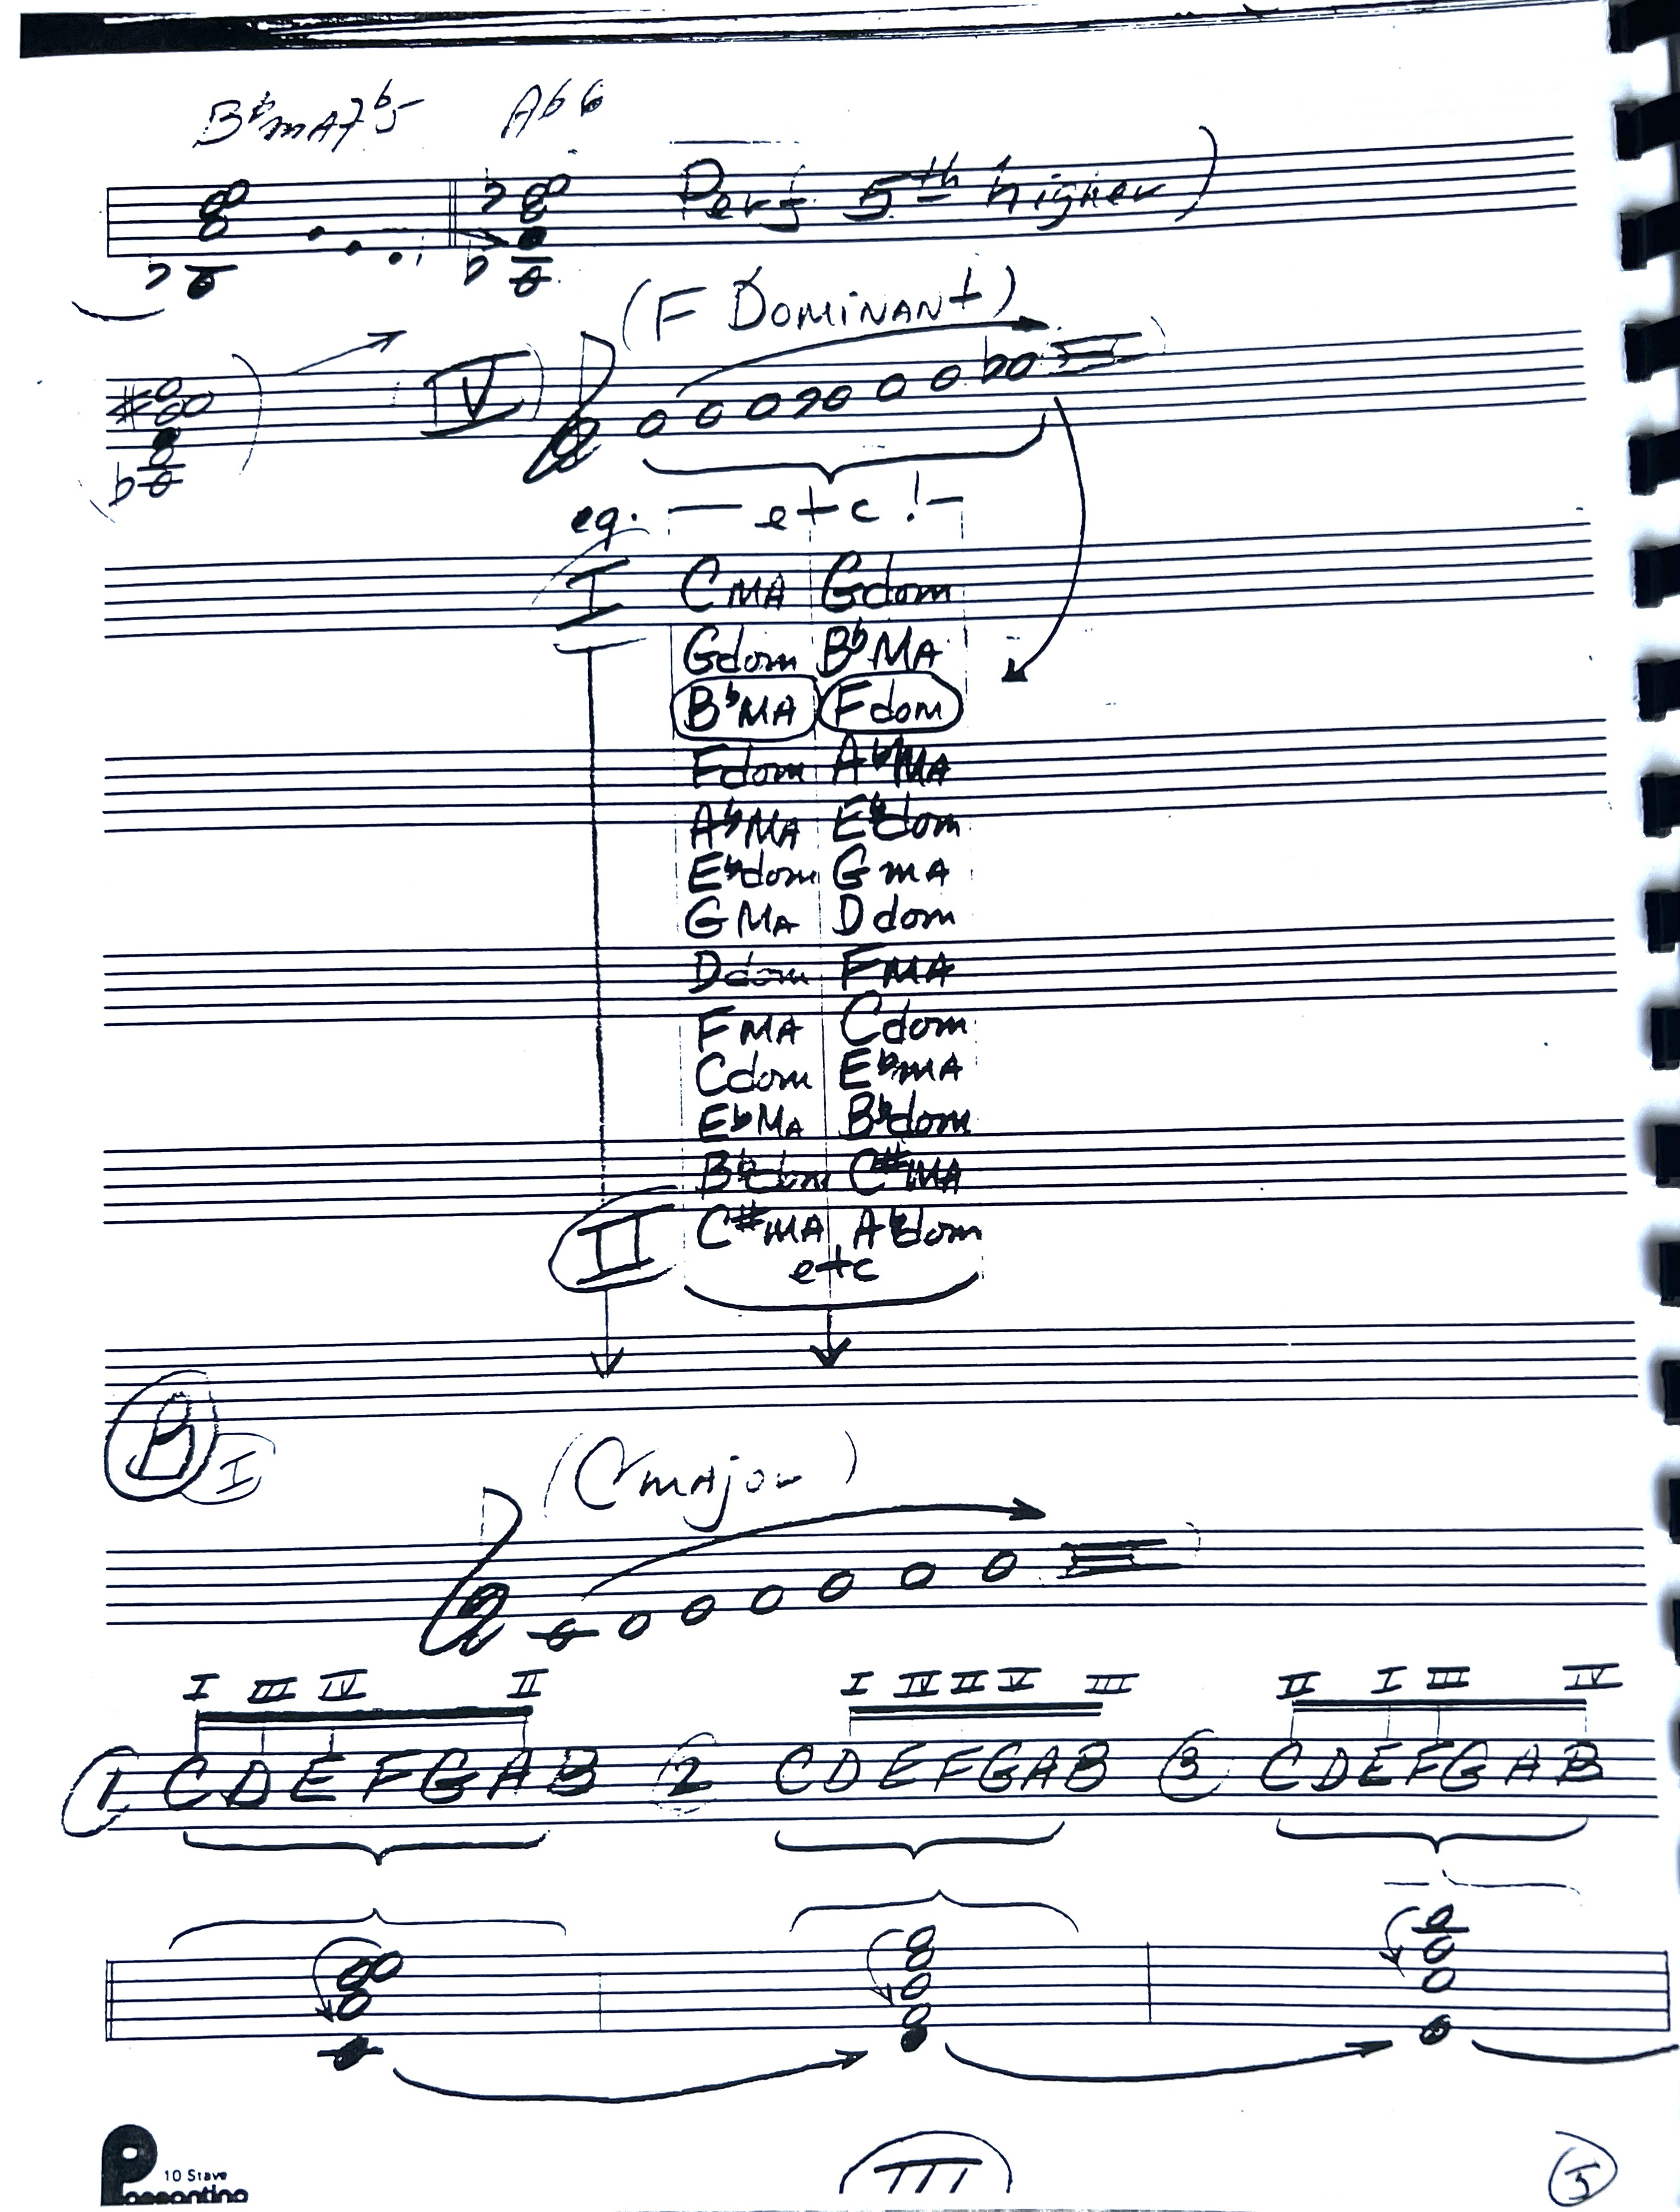 B♭MA7♭5 A♭6
Perf 5th higher)
(F DOMINANT)
IV)
eg. — etc! —
I CMA Gdom
Gdom B♭MA
B♭MA Fdom
Fdom A♭MA
A♭MA E♭dom
E♭dom GMA
GMA Ddom
Ddom FMA
FMA Cdom
Cdom E♭MA
E♭MA B♭dom
B♭dom C#MA
II C#MA A♭dom
etc
B I
(C MAJOR)
I III IV II I IV II V III II I III IV
1 C D E F G A B 2 C D E F G A B 3 C D E F G A B
10 Stave
Passantino
III
5